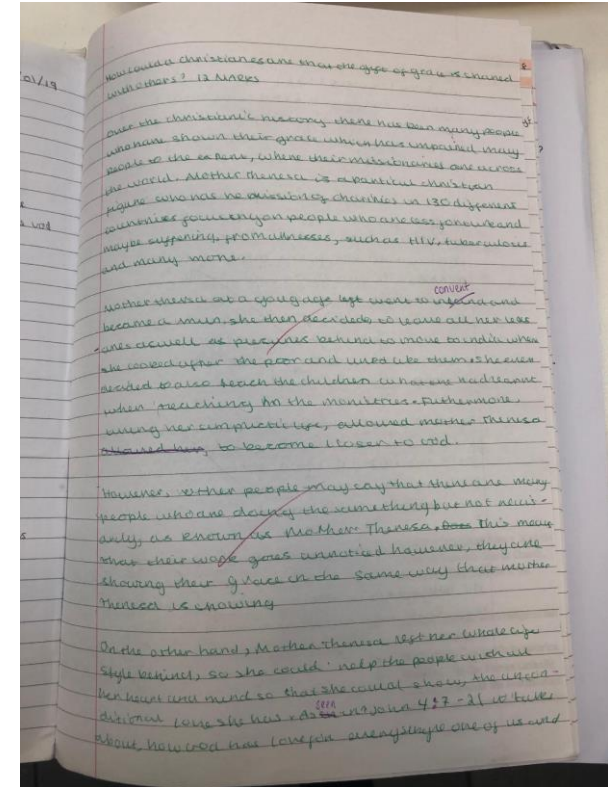 01/19
God
How could a christian esane that the gift of grace is shared
with others? 12 Marks
Over the christianic history there has been many people
who have shown their grace which has impaired many
people to the extent, where their missionaries are across
the world. Mother Theresa is a christian
figure who has he mission of charities in 130 different
countries focusing on people who are less and
maybe suffering, from illnesses, such as HIV, tuberculosis
and many more.
Mother theresa at a young age left went to and
convent
became a nun, she then decided, to leave all her
ones aswell as behind to move to india where
she looked after the poor and lived like them. She even
decided to also teach the children what she had learnt
when teaching in the monistries. Futhermore,
living her simplistic life, allowed mother Theresa
allowed her, to become closer to God.
However, other people may say that there are many
people who are doing the same thing but not
as known as Mother Theresa. This may
that their work goes unnoticed however, they are
showing their grace in the same way that mother
Theresa is showing
On the other hand, Mother theresa left her whole life
style behind, so she could help the people with all
her heart and mind so that she could show, the uncon-
ditional love she has. As seen in John 4:7-21 it talks
about, how God has love for every single one of us and